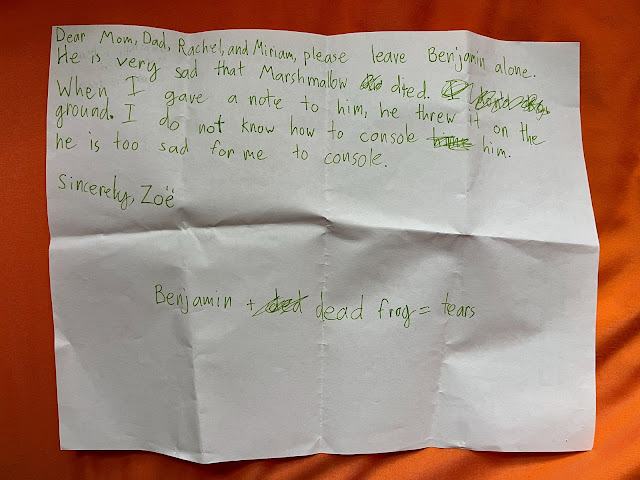 Dear Mom, Dad, Rachel, and Miriam, please leave Benjamin alone.
He is very sad that Marshmallow died. I
When I gave a note to him, he threw it on the
ground. I do not know how to console him.
he is too sad for me to console.
Sincerely, Zoë
Benjamin + dead frog = tears